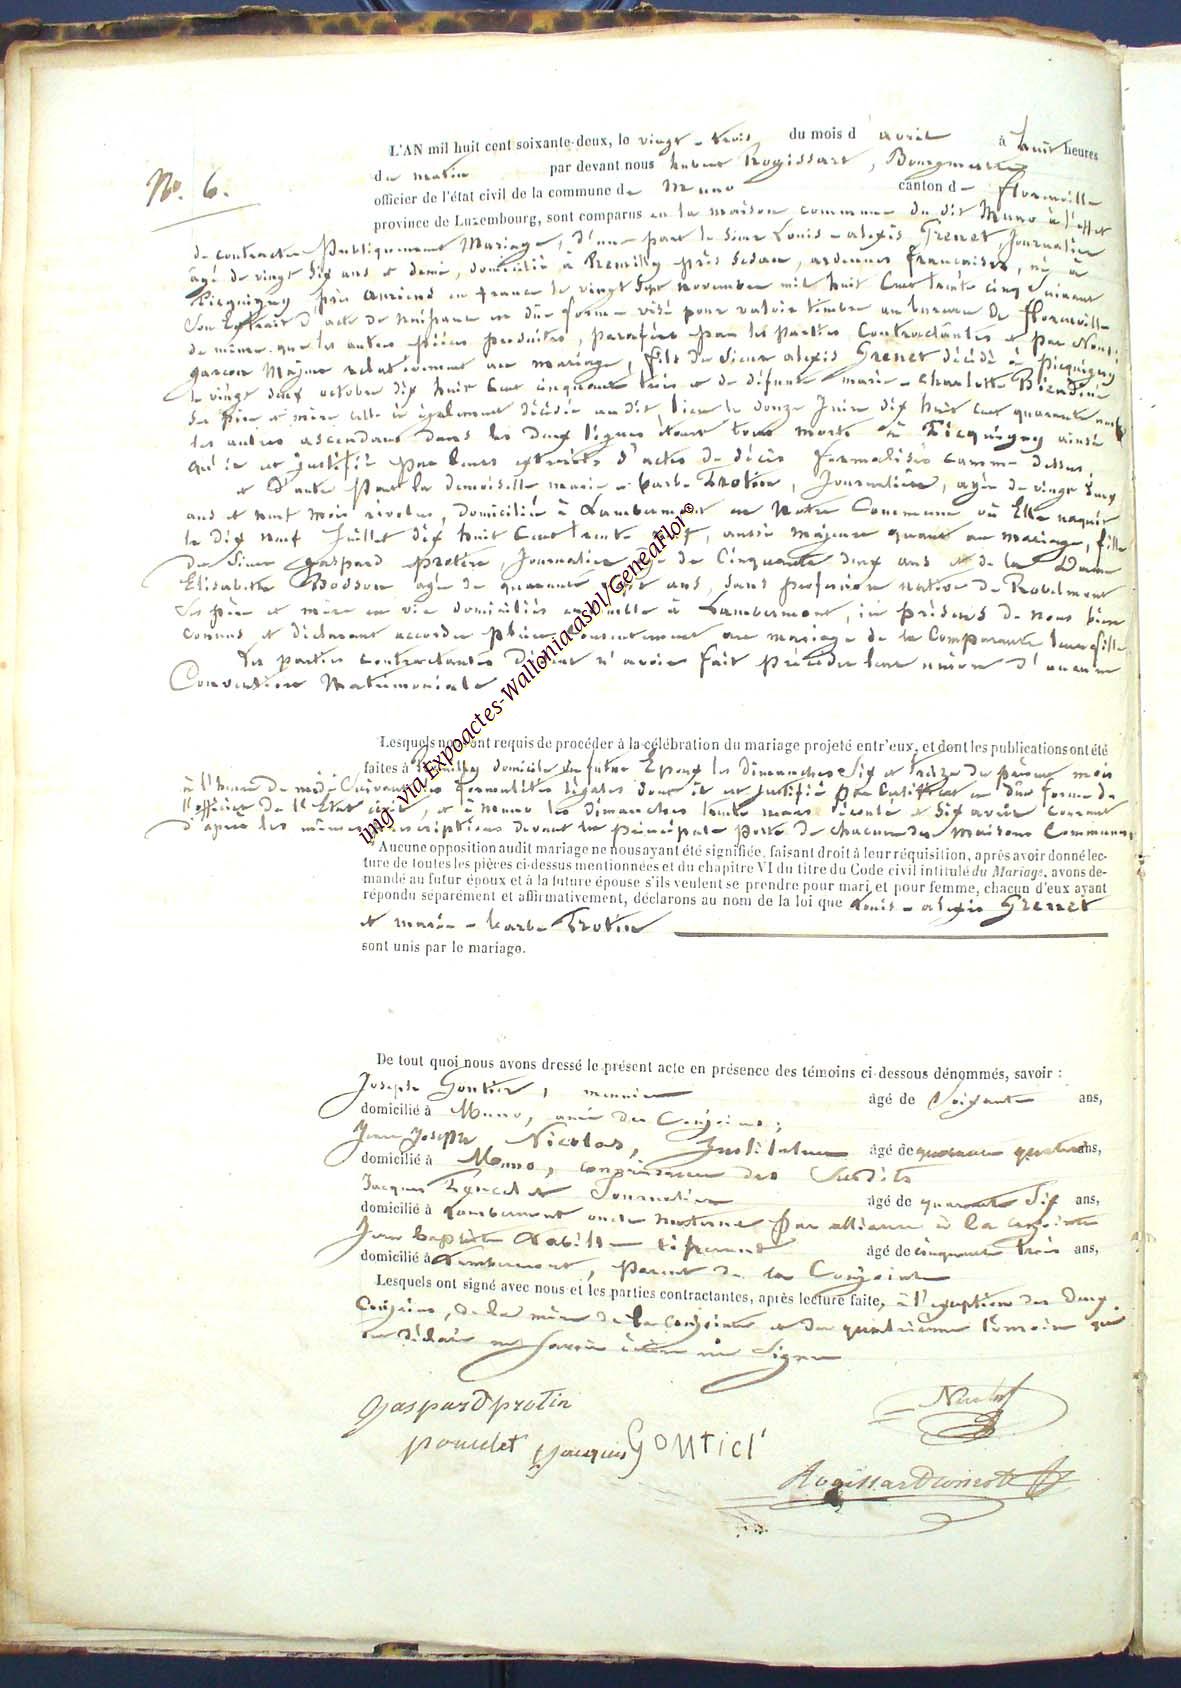 L'AN mil huit cent soixante-deux, le vingt-trois du mois d'avril à huit heures
No. 6.
du matin par devant nous hubert Rogissart, Bourgmestre
officier de l'état civil de la commune de Muno canton de florenville
province de Luxembourg, sont comparus en la maison commune du dit Muno à l'effet
de contracter publiquement Mariage, d'une part le sieur Louis-alexis Grenet, journalier
âgé de vingt six ans et demi, domicilié à Remilly près Sedan, ardennes françaises, né à
Picquigny près amiens en france le vingt sept novembre mil huit Cent trente cinq suivant
son Extrait d'acte de naissance en due forme visé pour valoir timbre au bureau de florenville
de même que les autres pièces produites, parafées par les Parties Contractantes et par Nous,
garçon Majeur relativement au mariage, fils de sieur alexis Grenet décédé à Picquigny
le vingt deux octobre dix huit Cent cinquante trois et de défunte marie-charlotte
ses père et mère celle ci également décédée au dit lieu le douze Juin dix huit cent quarante neuf
les autres ascendans dans les deux lignes étant tous morts à Picquigny ainsi
qu'il est justifié par leurs extraits d'actes de décès formalisés comme dessus,
et d'autre part la demoiselle marie-barbe Protin, Journalière, agée de vingt deux
ans et neuf mois révolus, domiciliée à Lambermont en Notre Commune où Elle naquit
le dix neuf Juillet dix huit Cent trente neuf, aussi majeure quant au mariage, fille
du Sieur gaspard protin, Journalier agé de Cinquante deux ans et de la Dame
Elisabeth Bodson agée de quarante sept ans, sans profession native de
ses père et mère en vie domiciliés ensemble à Lambermont, ici présens de nous bien
connus et déclarant accorder pleine consentement au mariage de la Comparante leur fille
Les parties contractantes disent n'avoir fait précéder leur union d'aucune
Convention Matrimoniale
Lesquels nous ont requis de procéder à la célébration du mariage projeté entr'eux, et dont les publications ont été
faites à Remilly domicile du futur Epoux les dimanches six et treize du présent mois
à l'heure de midi suivant les formalités légales dont il est justifié par Certificat en due forme de
l'officier de l'Etat civil, et à nouveau les dimanches trente mars écoulé et six avril courant
d'après les mêmes prescriptions devant la principale porte de chacune des maisons Communes
Aucune opposition audit mariage ne nous ayant été signifiée, faisant droit à leur réquisition, après avoir donné lec-
ture de toutes les pièces ci-dessus mentionnées et du chapitre VI du titre du Code civil intitulé du Mariage, avons de-
mandé au futur époux et à la future épouse s'ils veulent se prendre pour mari et pour femme, chacun d'eux ayant
répondu séparément et affirmativement, déclarons au nom de la loi que Louis-alexis Grenet
et marie-barbe Protin
sont unis par le mariage.
De tout quoi nous avons dressé le présent acte en présence des témoins ci-dessous dénommés, savoir :
Joseph Gontier, âgé de soixante ans,
domicilié à Muno, ami des Conjoins;
Jean Joseph Nicolas, Instituteur âgé de quarante quatre ans,
domicilié à Muno, connaissance des Susdits
Jacques Poncelet Journalier âgé de quarante six ans,
domicilié à Lambermont oncle Materne par alliance à la conjointe
Jean baptiste âgé de cinquante trois ans,
domicilié à Lambermont, parent de la Conjointe
Lesquels ont signé avec nous et les parties contractantes, après lecture faite, à l'exeption des deux
Conjoins, de la mère de la conjointe et du quatrième témoin qui
ont déclaré ne savoir écrire ni signer
gaspard protin
Nicolas
poncelet jacques Gontier
Rogissart
img. via Expoactes-Wallonia asbl/GeneaFlor©